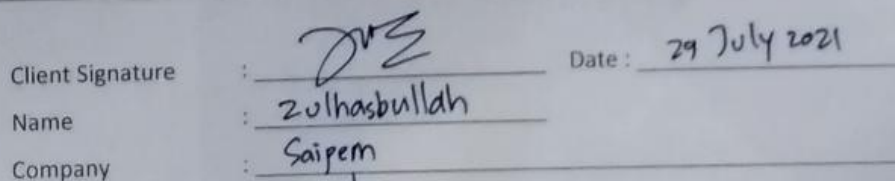 Client Signature : Date : 29 July 2021
Name : Zulhasbullah
Company : Saipem